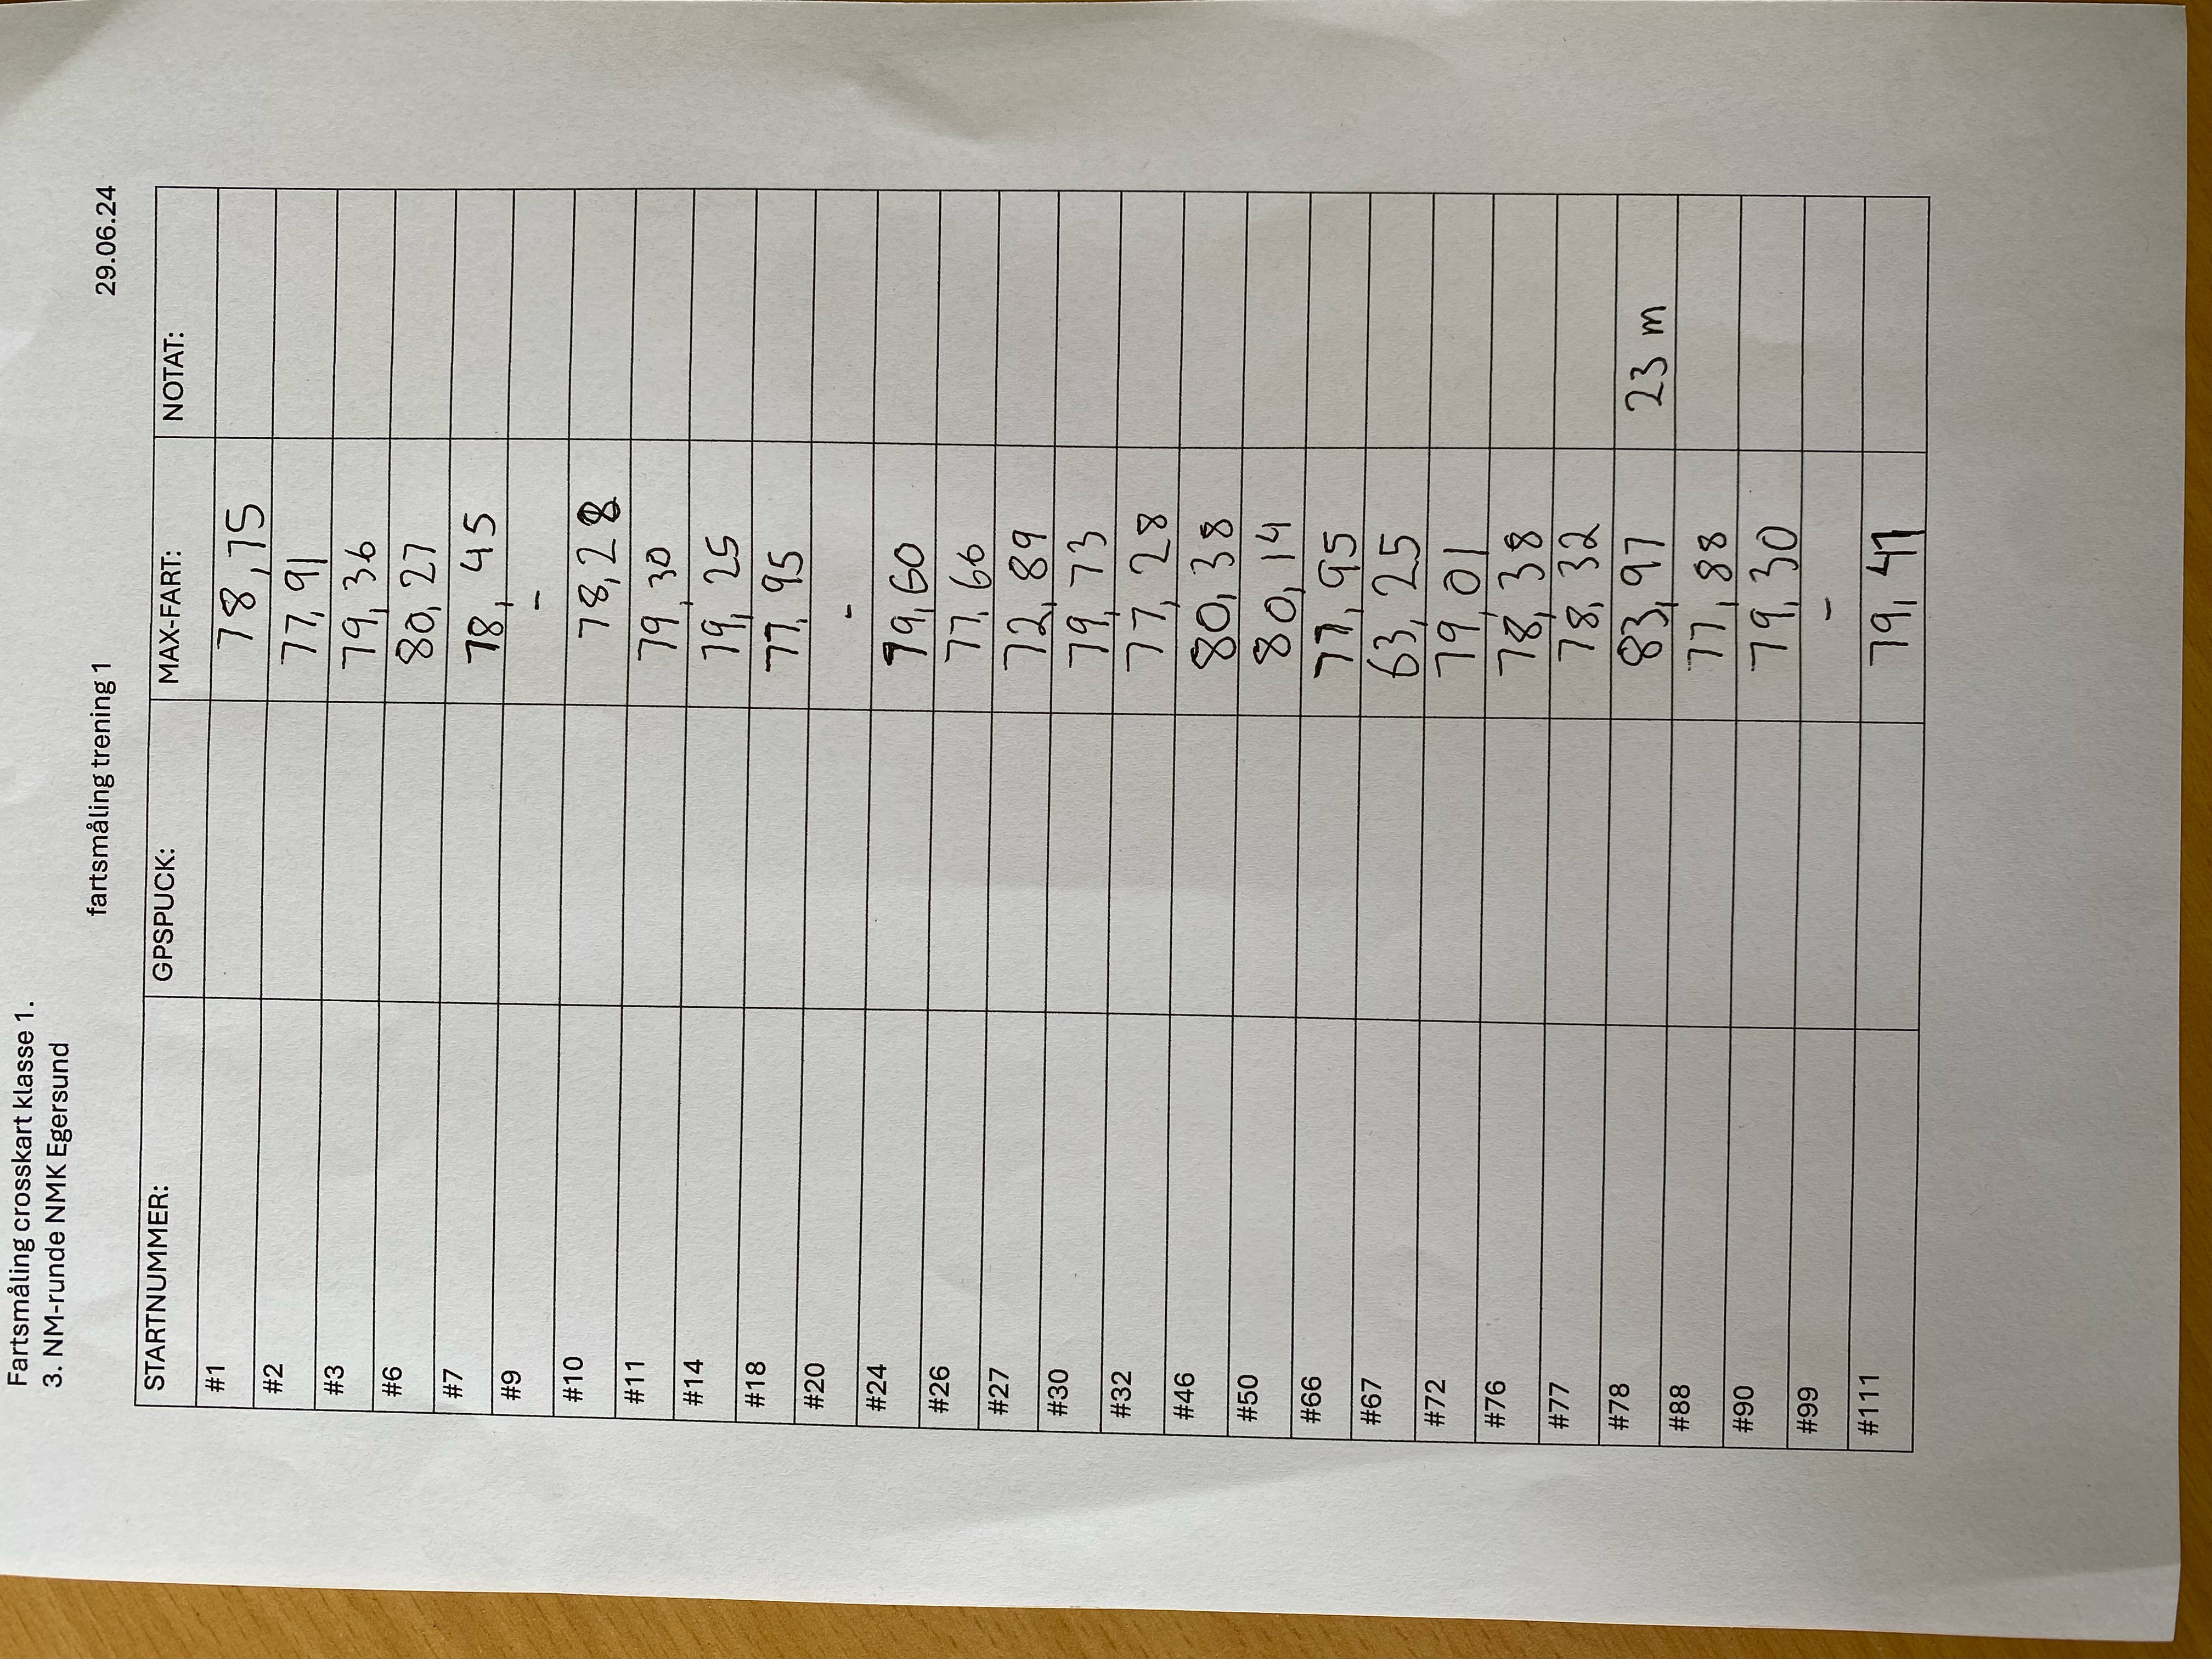 Fartsmåling crosskart klasse 1.
3. NM-runde NMK Egersund
fartsmåling trening 1 29.06.24
STARTNUMMER: GPSPUCK: MAX-FART: NOTAT:
#1 78,75
#2 77,91
#3 79,36
#6 80,27
#7 78,45
#9 -
#10 78,28
#11 79,30
#14 79,25
#18 77,95
#20 -
#24 79,60
#26 77,66
#27 72,89
#30 79,73
#32 77,28
#46 80,38
#50 80,14
#66 77,95
#67 63,25
#72 79,01
#76 78,38
#77 78,32
#78 83,97 23 m
#88 77,88
#90 79,30
#99 -
#111 79,41